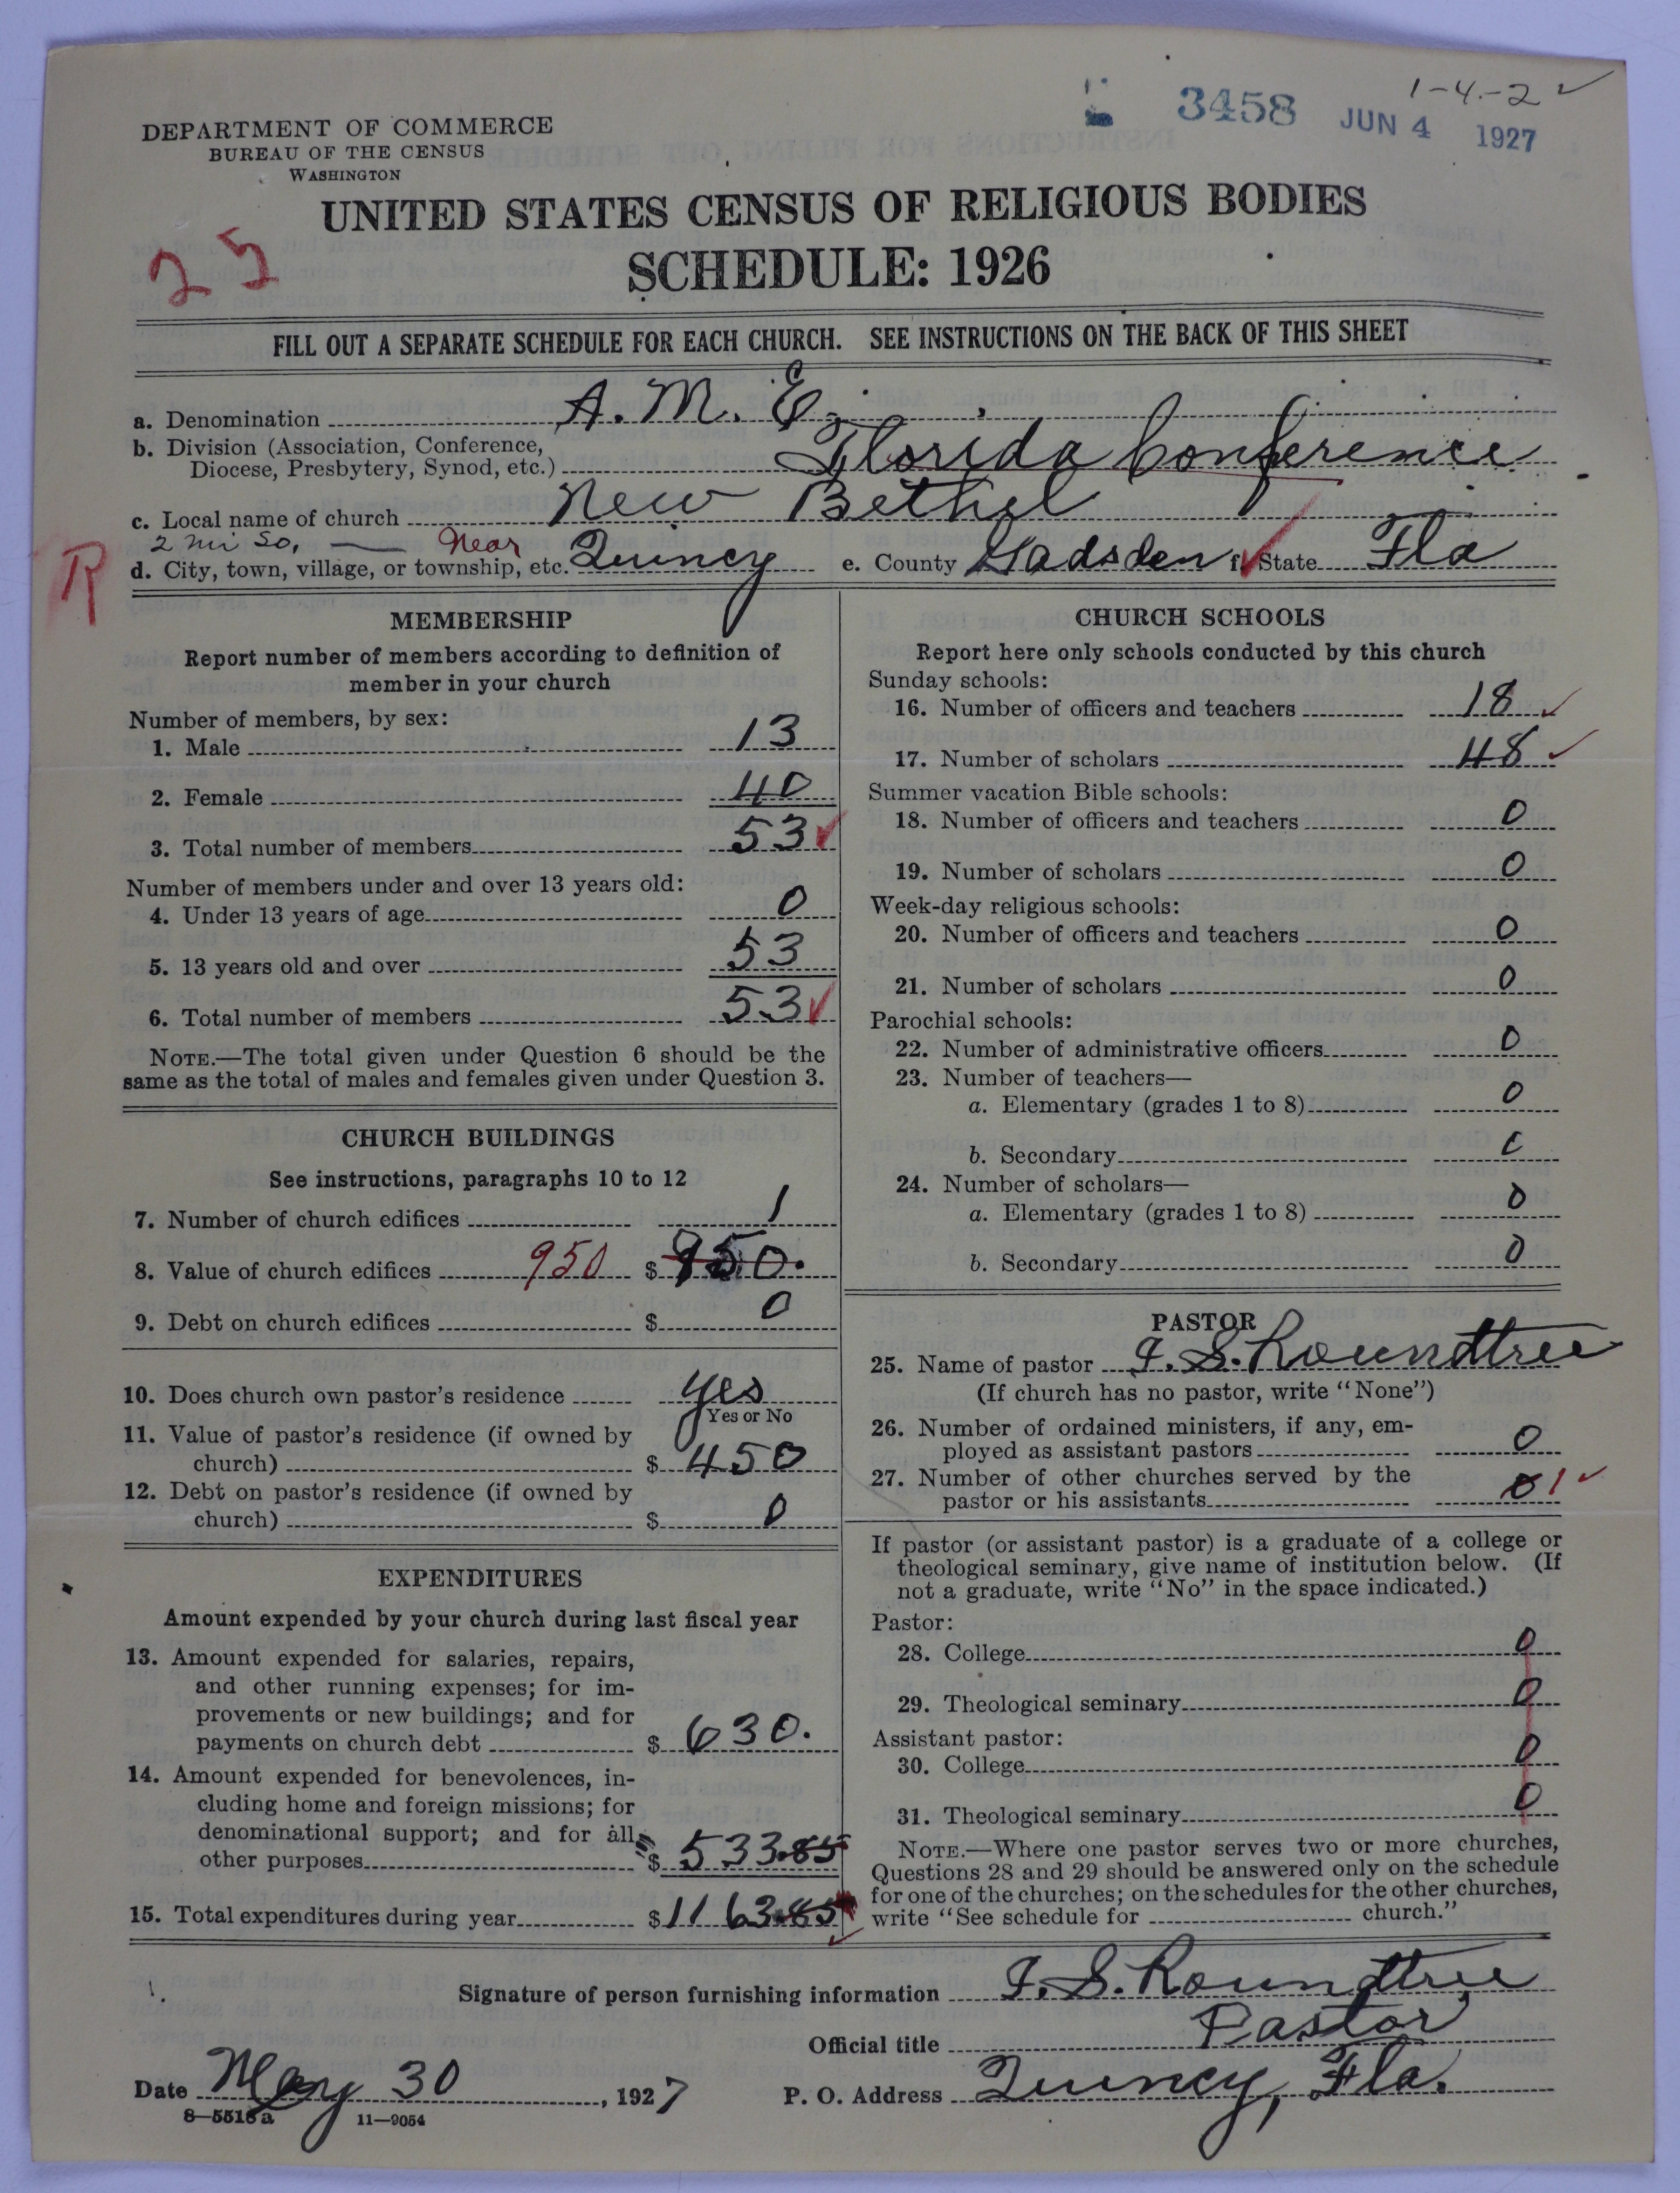 1-4-2 ✓
3458 JUN 4 1927
DEPARTMENT OF COMMERCE
BUREAU OF THE CENSUS
WASHINGTON
UNITED STATES CENSUS OF RELIGIOUS BODIES
25
SCHEDULE: 1926
FILL OUT A SEPARATE SCHEDULE FOR EACH CHURCH. SEE INSTRUCTIONS ON THE BACK OF THIS SHEET
a. Denomination A. M. E.
b. Division (Association, Conference,
Diocese, Presbytery, Synod, etc.) Florida Conference
c. Local name of church New Bethel
2 mi So, — Near
R
d. City, town, village, or township, etc. Quincy e. County Gadsden f. State Fla
MEMBERSHIP
Report number of members according to definition of
member in your church
Number of members, by sex:
1. Male 13
2. Female 40
3. Total number of members 53 ✓
Number of members under and over 13 years old:
4. Under 13 years of age 0
5. 13 years old and over 53
6. Total number of members 53 ✓
NOTE.—The total given under Question 6 should be the
same as the total of males and females given under Question 3.
CHURCH BUILDINGS
See instructions, paragraphs 10 to 12
7. Number of church edifices 1
8. Value of church edifices 950 $ 950.
9. Debt on church edifices $ 0
10. Does church own pastor's residence yes
Yes or No
11. Value of pastor's residence (if owned by
church) $ 450
12. Debt on pastor's residence (if owned by
church) $ 0
EXPENDITURES
Amount expended by your church during last fiscal year
13. Amount expended for salaries, repairs,
and other running expenses; for im-
provements or new buildings; and for
payments on church debt $ 630.
14. Amount expended for benevolences, in-
cluding home and foreign missions; for
denominational support; and for all
other purposes $ 533.85
15. Total expenditures during year $ 1163.85
CHURCH SCHOOLS
Report here only schools conducted by this church
Sunday schools:
16. Number of officers and teachers 18 ✓
17. Number of scholars 48 ✓
Summer vacation Bible schools:
18. Number of officers and teachers 0
19. Number of scholars 0
Week-day religious schools:
20. Number of officers and teachers 0
21. Number of scholars 0
Parochial schools:
22. Number of administrative officers 0
23. Number of teachers—
a. Elementary (grades 1 to 8) 0
b. Secondary 0
24. Number of scholars—
a. Elementary (grades 1 to 8) 0
b. Secondary 0
PASTOR
25. Name of pastor I. S. Roundtree
(If church has no pastor, write "None")
26. Number of ordained ministers, if any, em-
ployed as assistant pastors 0
27. Number of other churches served by the
pastor or his assistants 0 1 ✓
If pastor (or assistant pastor) is a graduate of a college or
theological seminary, give name of institution below. (If
not a graduate, write "No" in the space indicated.)
Pastor:
28. College 0
29. Theological seminary 0
Assistant pastor:
30. College 0
31. Theological seminary 0
NOTE.—Where one pastor serves two or more churches,
Questions 28 and 29 should be answered only on the schedule
for one of the churches; on the schedules for the other churches,
write "See schedule for church."
Signature of person furnishing information I. S. Roundtree
Official title Pastor
Date May 30, 1927 P. O. Address Quincy, Fla.
8—5516a 11—9054